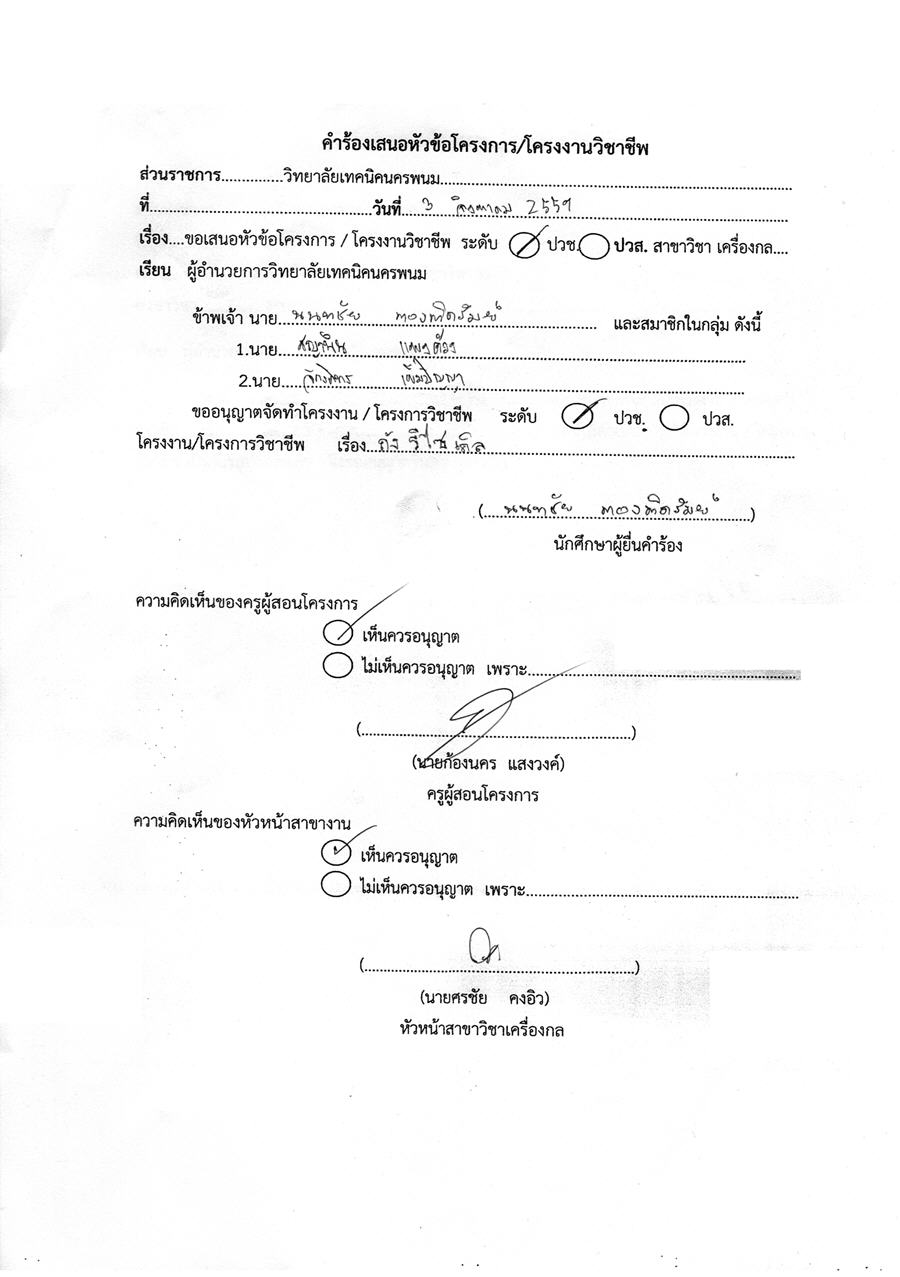 คำร้องเสนอหัวข้อโครงการ/โครงงานวิชาชีพ
ส่วนราชการ...............วิทยาลัยเทคนิคนครพนม...............
ที่...............วันที่... 3 2559
เรื่อง....ขอเสนอหัวข้อโครงการ / โครงงานวิชาชีพ ระดับ ปวช. ปวส. สาขาวิชา เครื่องกล....
เรียน ผู้อำนวยการวิทยาลัยเทคนิคนครพนม
ข้าพเจ้า นาย... นนทชัย และสมาชิกในกลุ่ม ดังนี้
1.นาย...
2.นาย...
ขออนุญาตจัดทำโครงงาน / โครงการวิชาชีพ ระดับ ปวช. ปวส.
โครงงาน/โครงการวิชาชีพ เรื่อง... ถังรีไซเคิล
(... นนทชัย ...)
นักศึกษาผู้ยื่นคำร้อง
ความคิดเห็นของครูผู้สอนโครงการ
เห็นควรอนุญาต
ไม่เห็นควรอนุญาต เพราะ...............
(...............)
(นายก้องนคร แสงวงค์)
ครูผู้สอนโครงการ
ความคิดเห็นของหัวหน้าสาขางาน
เห็นควรอนุญาต
ไม่เห็นควรอนุญาต เพราะ...............
(...............)
(นายศรชัย คงอิว)
หัวหน้าสาขาวิชาเครื่องกล